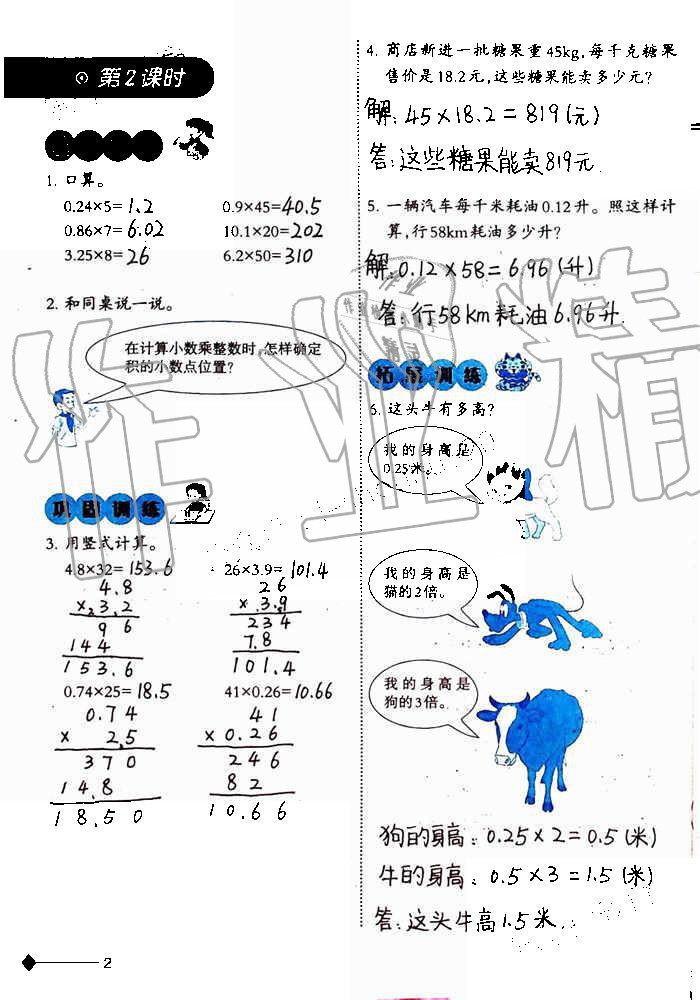 第2课时
1. 口算。
0.24×5=1.2 0.9×45=40.5
0.86×7=6.02 10.1×20=202
3.25×8=26 6.2×50=310
2. 和同桌说一说。
在计算小数乘整数时,怎样确定
积的小数点位置?
巩固训练
3. 用竖式计算。
4.8×32=153.6 26×3.9=101.4
4.8 26
×3.2 ×3.9
96 234
144 7.8
153.6 101.4
0.74×25=18.5 41×0.26=10.66
0.74 41
× 2.5 ×0.26
370 246
14.8 82
18.50 10.66
2
4. 商店新进一批糖果重45kg,每千克糖果
售价是18.2元,这些糖果能卖多少元?
解:45×18.2=819(元)
答:这些糖果能卖819元.
5. 一辆汽车每千米耗油0.12升。照这样计
算,行58km耗油多少升?
解:0.12×58=6.96(升)
答:行58km耗油6.96升.
拓展训练
6. 这头牛有多高?
我的身高是
0.25米。
我的身高是
猫的2倍。
我的身高是
狗的3倍。
狗的身高:0.25×2=0.5(米)
牛的身高:0.5×3=1.5(米)
答:这头牛高1.5米.
作业精